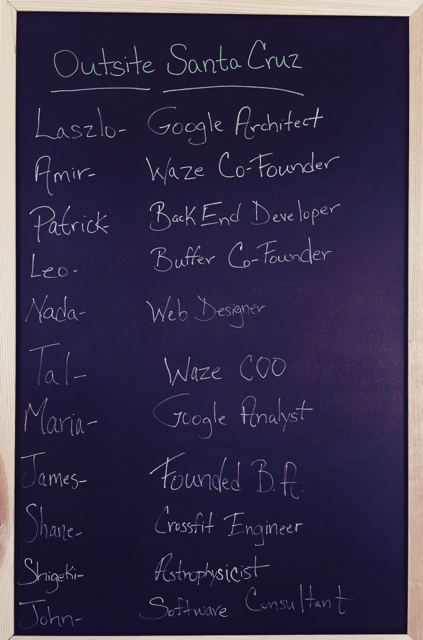 Outsite Santa Cruz
Laszlo- Google Architect
Amir- Waze Co-Founder
Patrick- Back End Developer
Leo- Buffer Co-Founder
Nada- Web Designer
Tal- Waze COO
Maria- Google Analyst
James- Founded B.A.
Shane- Crossfit Engineer
Shigeki- Astrophysicist
John- Software Consultant